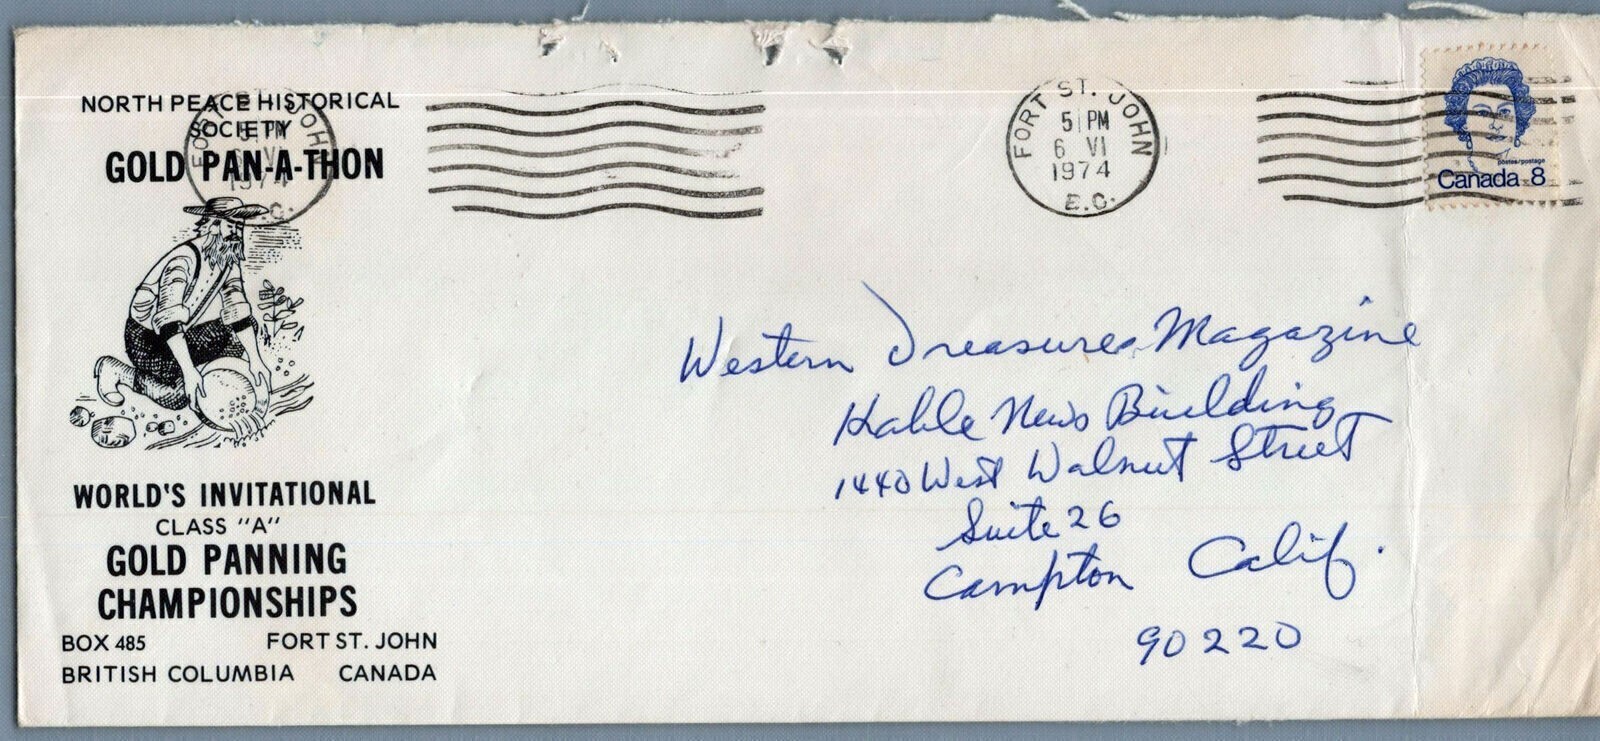 NORTH PEACE HISTORICAL
SOCIETY
GOLD PAN-A-THON
WORLD'S INVITATIONAL
CLASS "A"
GOLD PANNING
CHAMPIONSHIPS
BOX 485 FORT ST. JOHN
BRITISH COLUMBIA CANADA
FORT ST. JOHN
5 PM
6 VI
1974
B.C.
FORT ST. JOHN
5 PM
6 VI
1974
B.C.
postes/postage
Canada 8
Western Treasures Magazine
Kable News Building
1440 West Walnut Street
Suite 26
Campton Calif.
90220